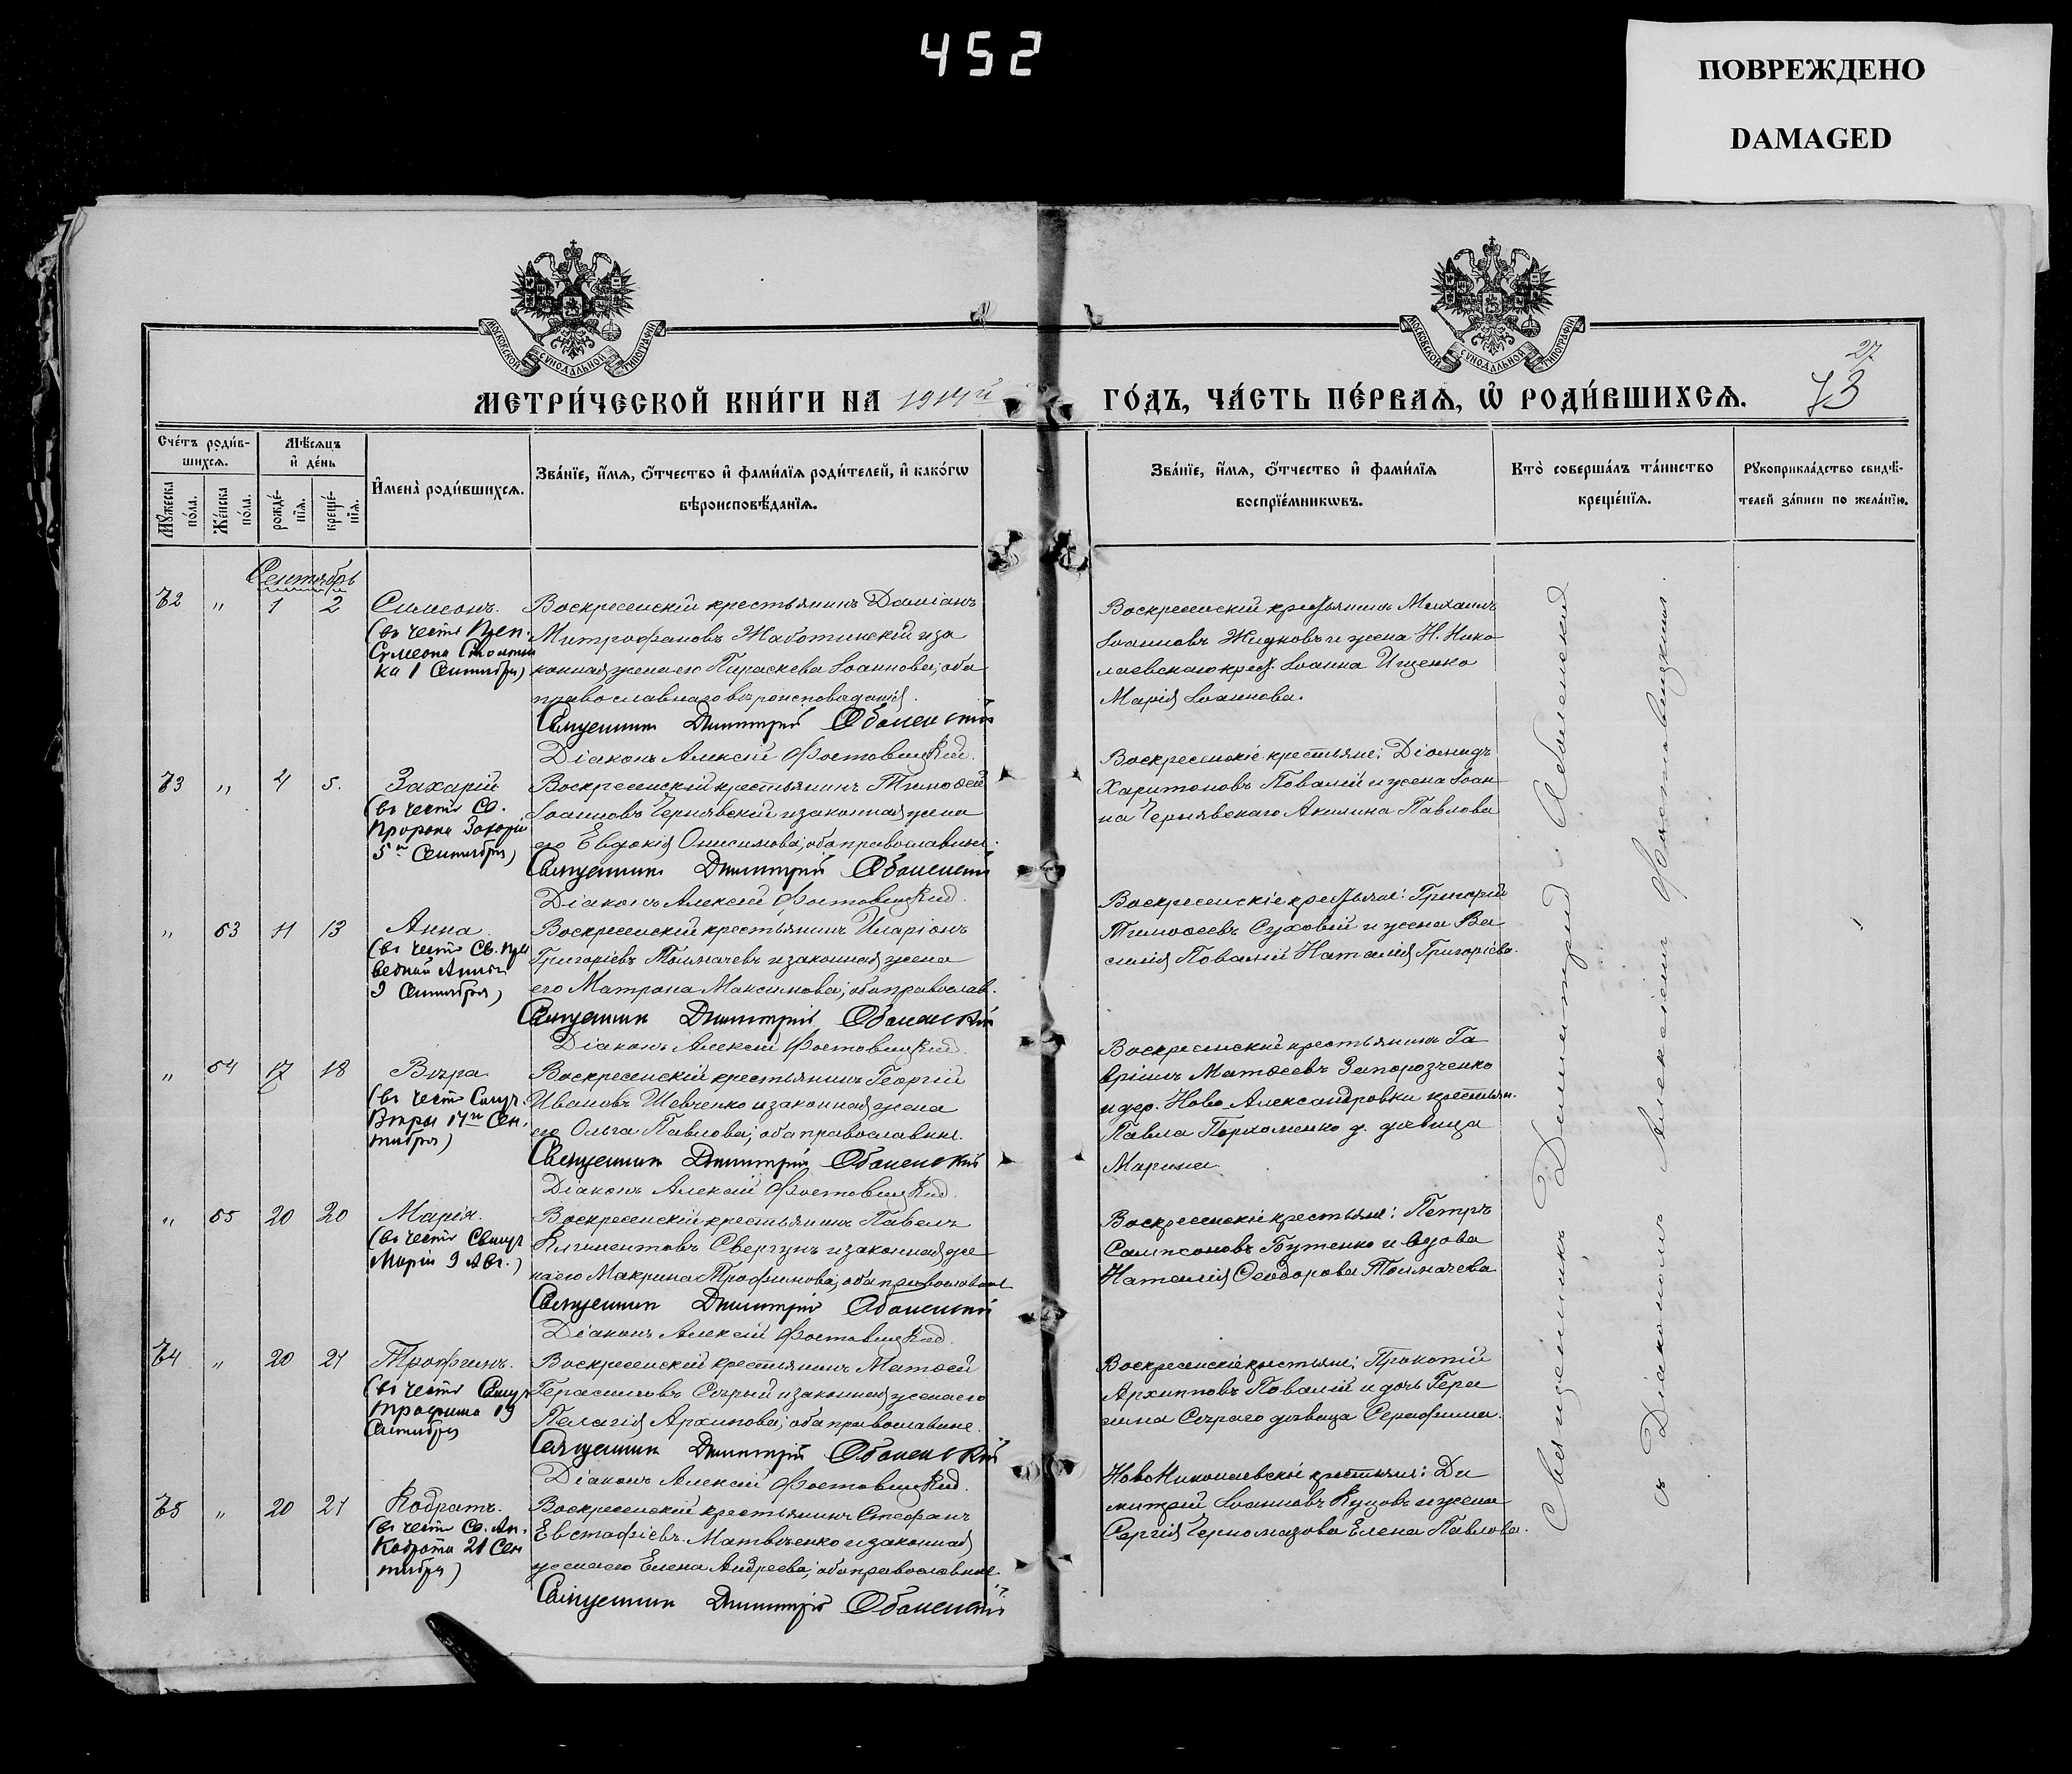 452
ПОВРЕЖДЕНО
DAMAGED
МОСКОВСКОЙ СУНОДАЛЬНОЙ ТИПОГРАФІИ
МОСКОВСКОЙ СУНОДАЛЬНОЙ ТИПОГРАФІИ
27
73
МЕТРИ́ЧЕСКОЙ КНИ́ГИ НА 1914й ГО́ДЪ, ЧА́СТЬ ПЕ́РВАѦ, Ѡ РОДИ́ВШИХСѦ.
Сче́тъ роди́в-
шихсѧ.
Мꙋжеска по́ла.
Же́нска по́ла.
Мѣ́сѧцъ
и҆ де́нь
рожде́-
нїѧ.
креще́-
нїѧ.
И҆мена̀ роди́вшихсѧ.
Зва́нїе, и҆́мѧ, ѻ҆́тчество и҆ фами́лїѧ роди́телей, и҆ како́гѡ
вѣроисповѣ́данїѧ.
Зва́нїе, и҆́мѧ, ѻ҆́тчество и҆ фами́лїѧ
воспрїе́мникѡвъ.
Кто̀ соверша́лъ та́инство
креще́нїѧ.
Рꙋкоприкла́дство свидѣ́-
телей за́писи по жела́нїю.
Сентябрь
72 " 1 2 Симеонъ.
(въ честь Преп.
Симеона Столпни
ка 1 Сентября)
Воскресенскій крестьянинъ Даміанъ
Митрофановъ Жаботинскій и за
конная жена его Параскева Іоаннова; оба
православнаго вѣроисповѣданія.
Священникъ Димитрій Оболенскій
Діаконъ Алексій Фостовицкій.
Воскресенскій крестьянинъ Михаилъ
Іоанновъ Жидковъ и жена Н. Нико
лаевскаго крест. Іоанна Ищенко
Марія Іоаннова.
73 " 4 5. Захарій
(въ честь Св.
Пророка Захарій
5го Сентября)
Воскресенскій крестьянинъ Тимоѳей
Іоанновъ Чернявскій и законная жена
его Евдокія Онисимова; оба православные.
Священникъ Димитрій Оболенскій
Діаконъ Алексій Фостовицкій.
Воскресенскіе крестьяне: Діомидъ
Харитоновъ Повалій и жена Іоан
на Чернявскаго Акилина Павлова
" 53 11 13 Анна
(въ честь Св. Пра
ведной Анны
9 Сентября)
Воскресенскій крестьянинъ Иларіонъ
Григоріевъ Толмачевъ и законная жена
его Матрона Максимова; оба православ.
Священникъ Димитрій Оболенскій
Діаконъ Алексій Фостовицкій.
Воскресенскіе крестьяне: Григорій
Тимоѳеевъ Суховій и жена Ва
силія Повалій Наталія Григоріева.
" 54 17 18 Вѣра
(въ честь Свмуч.
Вѣры 17го Сен
тября)
Воскресенскій крестьянинъ Георгій
Ивановъ Шевченко и законная жена
его Ольга Павлова; оба православные.
Священникъ Димитрій Оболенскій
Діаконъ Алексій Фостовицкій.
Воскресенскій крестьянинъ Га
вріилъ Матѳеевъ Запорозченко
и дер. Ново Александровки крестьян.
Павла Пархоменко д. дѣвица
Марина.
" 55 20 20 Марія.
(въ честь Свмуч
Маріи 9 Авг.)
Воскресенскій крестьянинъ Павелъ
Климентовъ Свергунъ и законная же
на его Макрина Трофимова; оба православные
Священникъ Димитрій Оболенскій
Діаконъ Алексій Фостовицкій.
Воскресенскіе крестьяне: Петръ
Сампсоновъ Бутенко и вдова
Наталія Ѳеодорова Толмачева
74 " 20 21 Трофимъ.
(въ честь Свмуч
Трофима 19
Сентября
Воскресенскій крестьянинъ Матѳей
Герасимовъ Сѣрый и законная жена его
Пелагія Архипова; оба православные.
Священникъ Димитрій Оболенскій
Діаконъ Алексій Фостовицкій.
Воскресенскіе крестьяне: Прокопій
Архипповъ Повалій и дочь Гера
сима Сѣраго дѣвица Серафима.
75 " 20 21 Кодратъ.
(въ честь Св. Ап.
Кодрата 21 Сен
тября)
Воскресенскій крестьянинъ Стефанъ
Евстафіевъ Матвѣенко и законная
жена его Елена Андреева; оба православные.
Священникъ Димитрій Оболенскій
НовоНиколаевскіе крестьяне: Ди
митрій Іоанновъ Куцовъ и жена
Сергія Черномазова Елена Павлова.
Священникъ Димитрій Оболенскій
съ Діакономъ Алексіемъ Фостовицкимъ.